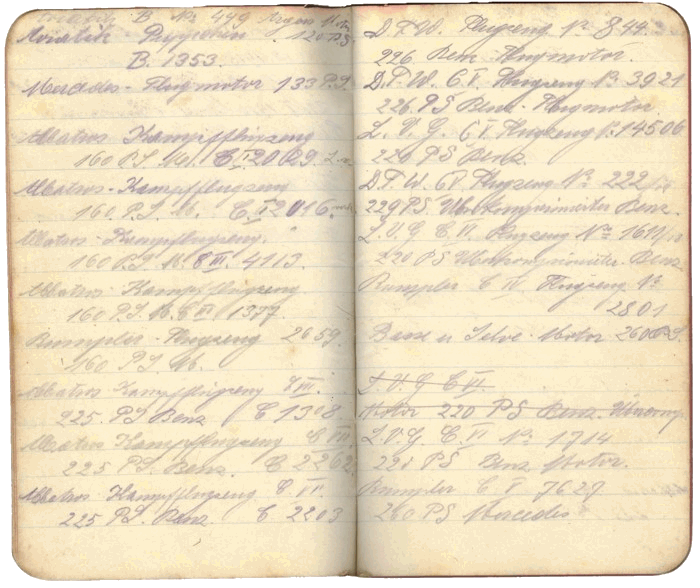 B. No 449 Argus Mot.
Aviatik 120 P.S.
B. 1353.
Mercedes - Flugmotor 133 P.S.
Albatros Kampfflugzeug
160 P.S. M. C I 2029.
Albatros - Kampfflugzeug
160 P.S. M. C I 2016
Albatros - Kampfflugzeug.
160 P.S. M. C III. 4113.
Albatros Kampfflugzeug
160 P.S. M. C III 1377.
Rumpler - Flugzeug 2659.
160 P.S. M.
Albatros Kampfflugzeug
225. PS Benz C 1308.
Albatros Kampfflugzeug C VII
225 P.S. Benz. C 2262.
Albatros Kampfflugzeug C VII.
225 P.S. Benz C 2203
D.F.W. Flugzeug No 844.
226 Benz - Flugmotor.
D.F.W. C V. Flugzeug No 3921
226 PS Benz - Flugmotor
L.V.G. C V. Flugzeug 14506
226 PS Benz
D.F.W. C V Flugzeug No 222
229 PS. Überkomprimierter Benz.
L.V.G C VI. Flugzeug No 1611/18
220 PS Überkomprimierter Benz
Rumpler C IV Flugzeug No
2801
Basse u Selve - Motor 260 P.S.
L.V.G C VI.
Motor 220 PS Benz.
L.V.G. C VI No 1714
220 PS Benz Motor.
Rumpler C 7627
260 PS Mercedes